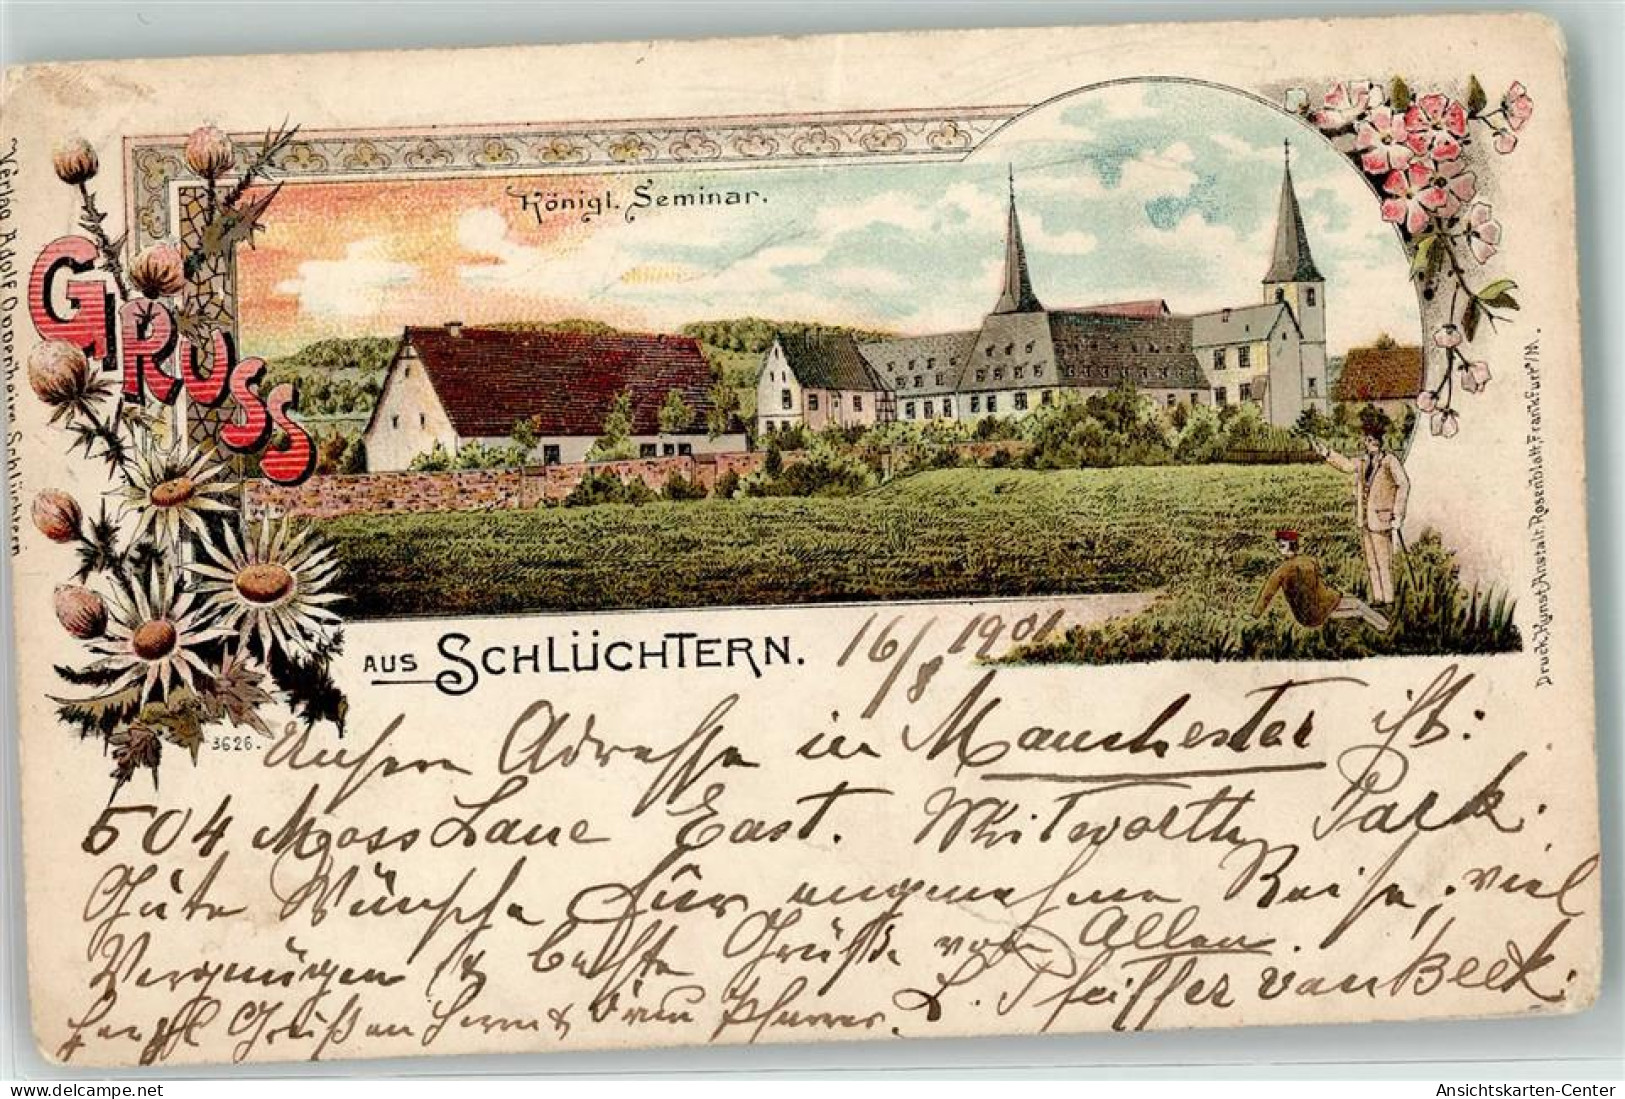 Königl. Seminar.
GRUSS
AUS SCHLÜCHTERN.
Verlag Adolf Oppenheim Schlüchtern
Druck. Kunst-Anstalt. Rosenblatt, Frankfurt a/M.
3626.
16/8 1901
Unsere Adresse in Manchester ist:
504 Moss Lane East. Whitworth Park.
Gute Wünsche für angenehme Reise, viel
Vergnügen & beste Grüße von Allen.
Grüß an Herrn & Frau Pfarrer. L. Pfeiffer van Beek.
Ansichtskarten-Center